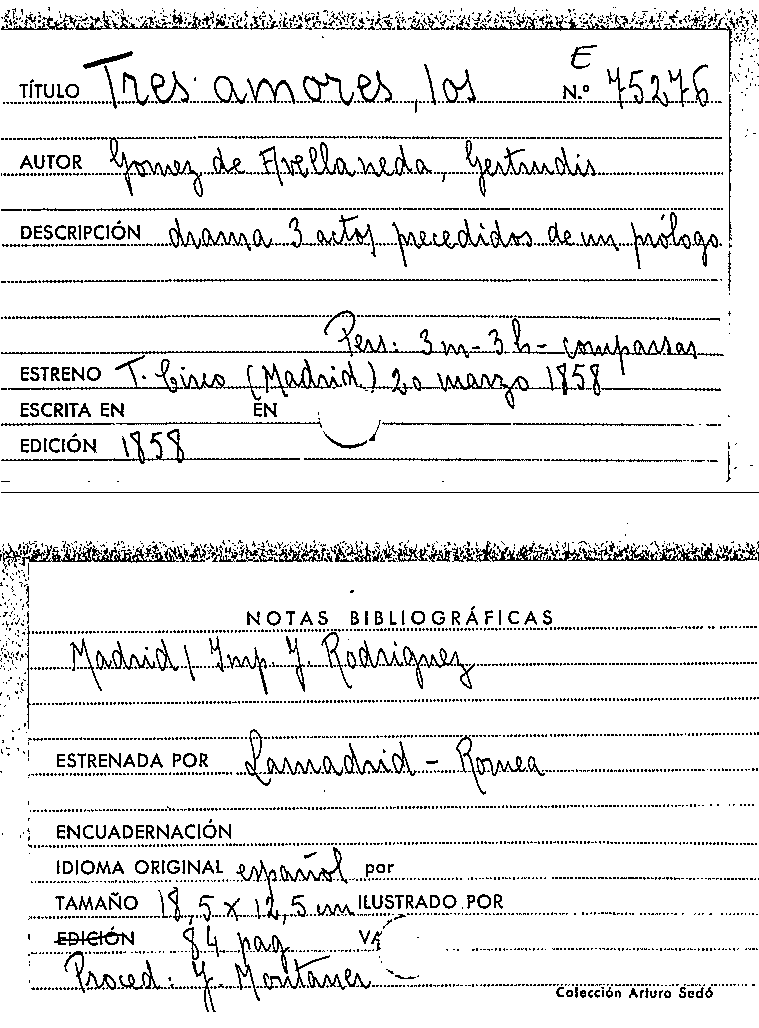 E
TÍTULO Tres amores, los N.º 75276
AUTOR Gomez de Avellaneda, Gertrudis
DESCRIPCIÓN drama 3 actos precedidos de un prólogo
Pers: 3m-3h- comparsas
ESTRENO T. Circo (Madrid) 20 marzo 1858
ESCRITA EN EN
EDICIÓN 1858
NOTAS BIBLIOGRÁFICAS
Madrid / Imp. J. Rodriguez
ESTRENADA POR Lamadrid - Romea
ENCUADERNACIÓN
IDIOMA ORIGINAL español por
TAMAÑO 18,5 x 12,5 cm ILUSTRADO POR
EDICIÓN 84 pag
Proced: J. Montaner
Colección Arturo Sedó